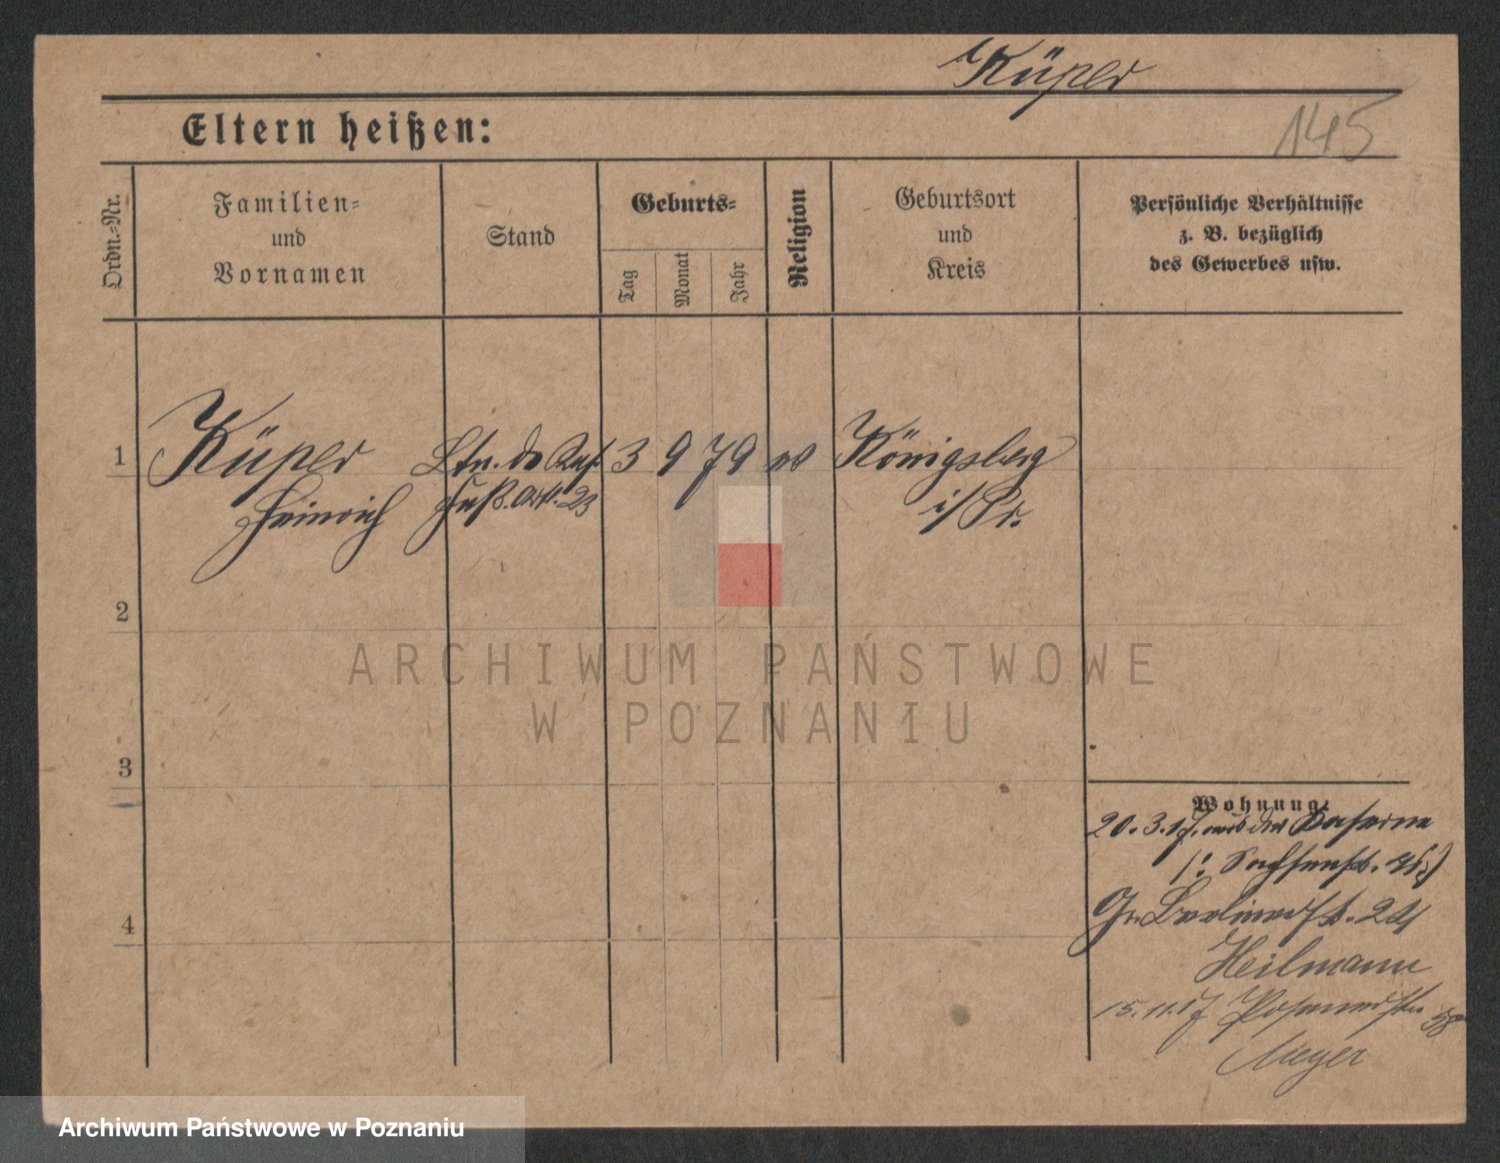 Küper
145
Eltern heißen:
Ordn.-Nr.
Familien-
und
Vornamen
Stand
Geburts-
Tag
Monat
Jahr
Religion
Geburtsort
und
Kreis
Persönliche Verhältnisse
z. B. bezüglich
des Gewerbes usw.
1 Küper Ltn. 3 9 79 Königsberg
Heinrich Fuß.Art. 23 i/Pr.
2
3
4
Wohnung:
20.3.17. aus der Kaserne
Gr. Berlinerst.
Heilmann
15.11.17 Posenerstr. 58
Meyer
ARCHIWUM PAŃSTWOWE
W POZNANIU
Archiwum Państwowe w Poznaniu